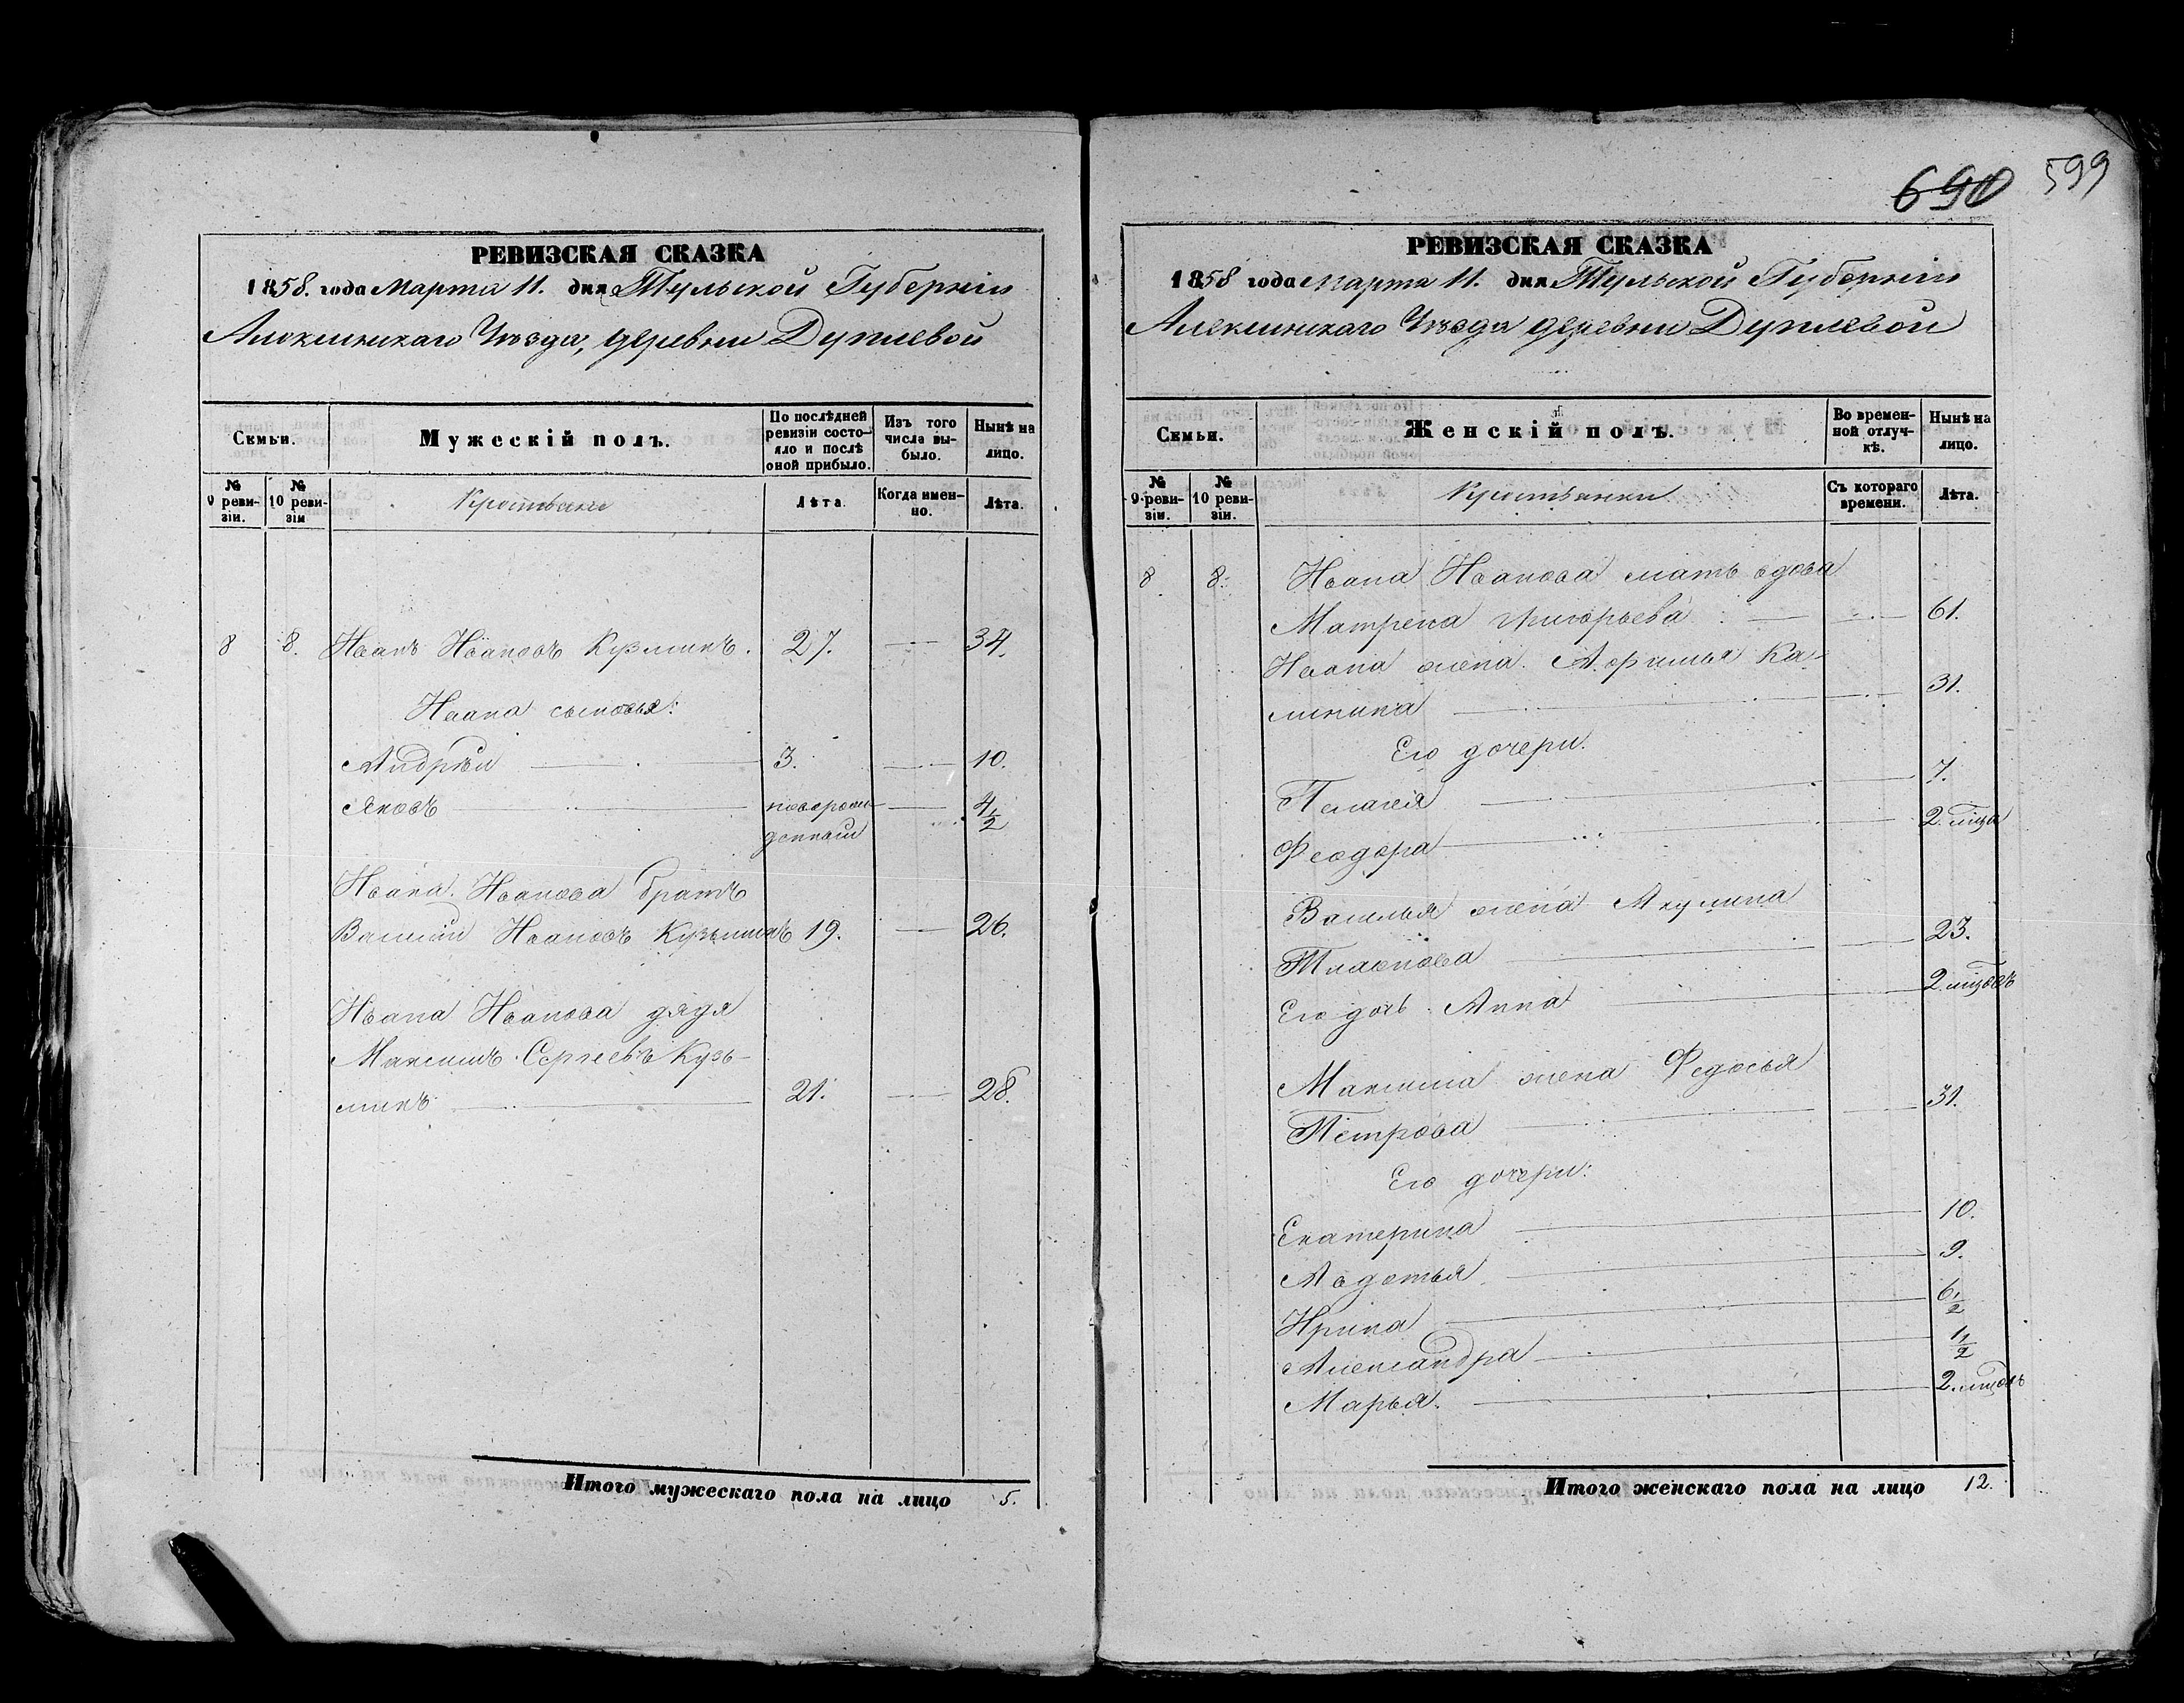 690 599
РЕВИЗСКАЯ СКАЗКА
1858. года Марта 11. дня Тульской Губерніи
Алексинскаго Уѣзда, деревни Дуплевой
Семьи.
Мужескій полъ.
По послѣдней ревизіи состояло и послѣ оной прибыло.
Изъ того числа выбыло.
Нынѣ на лицо.
№ 9 ревизіи.
№ 10 ревизіи
Крестьяне
Лѣта.
Когда именно.
Лѣта.
8 8. Иванъ Ивановъ Кузминъ. 27. — 34.
Ивана сыновья:
Андрѣй — 3. — 10.
Яковъ — новорож- — 4 1/2
денный
Ивана Иванова братъ
Василій Ивановъ Кузьминъ 19. — 26.
Ивана Иванова дядя
Максимъ Сергѣевъ Кузь-
минъ — 21. — 28.
Итого мужескаго пола на лицо 5.
РЕВИЗСКАЯ СКАЗКА
1858 года Марта 11. дня Тульской Губерніи
Алексинскаго Уѣзда деревни Дуплевой
Семьи.
Женскій полъ.
Во временной отлучкѣ.
Нынѣ на лицо.
№ 9 ревизіи.
№ 10 ревизіи.
Крестьянки
Съ котораго времени.
Лѣта.
8 8. Ивана Иванова мать вдова
Матрена Григорьева — 61.
Ивана жена Афимья Ка-
линина — 31.
Его дочери.
Пелагея — 7.
Феодора — 2. мѣца
Василья жена Акулина
— 23.
Его дочь Анна — 2 мѣцовъ
Максима жена Федосья
Петрова — 31.
Его дочери:
Екатерина — 10.
Авдотья — 9.
Ирина — 6 1/2
Александра — 1 1/2
Марья. — 2. мѣцовъ
Итого женскаго пола на лицо 12.